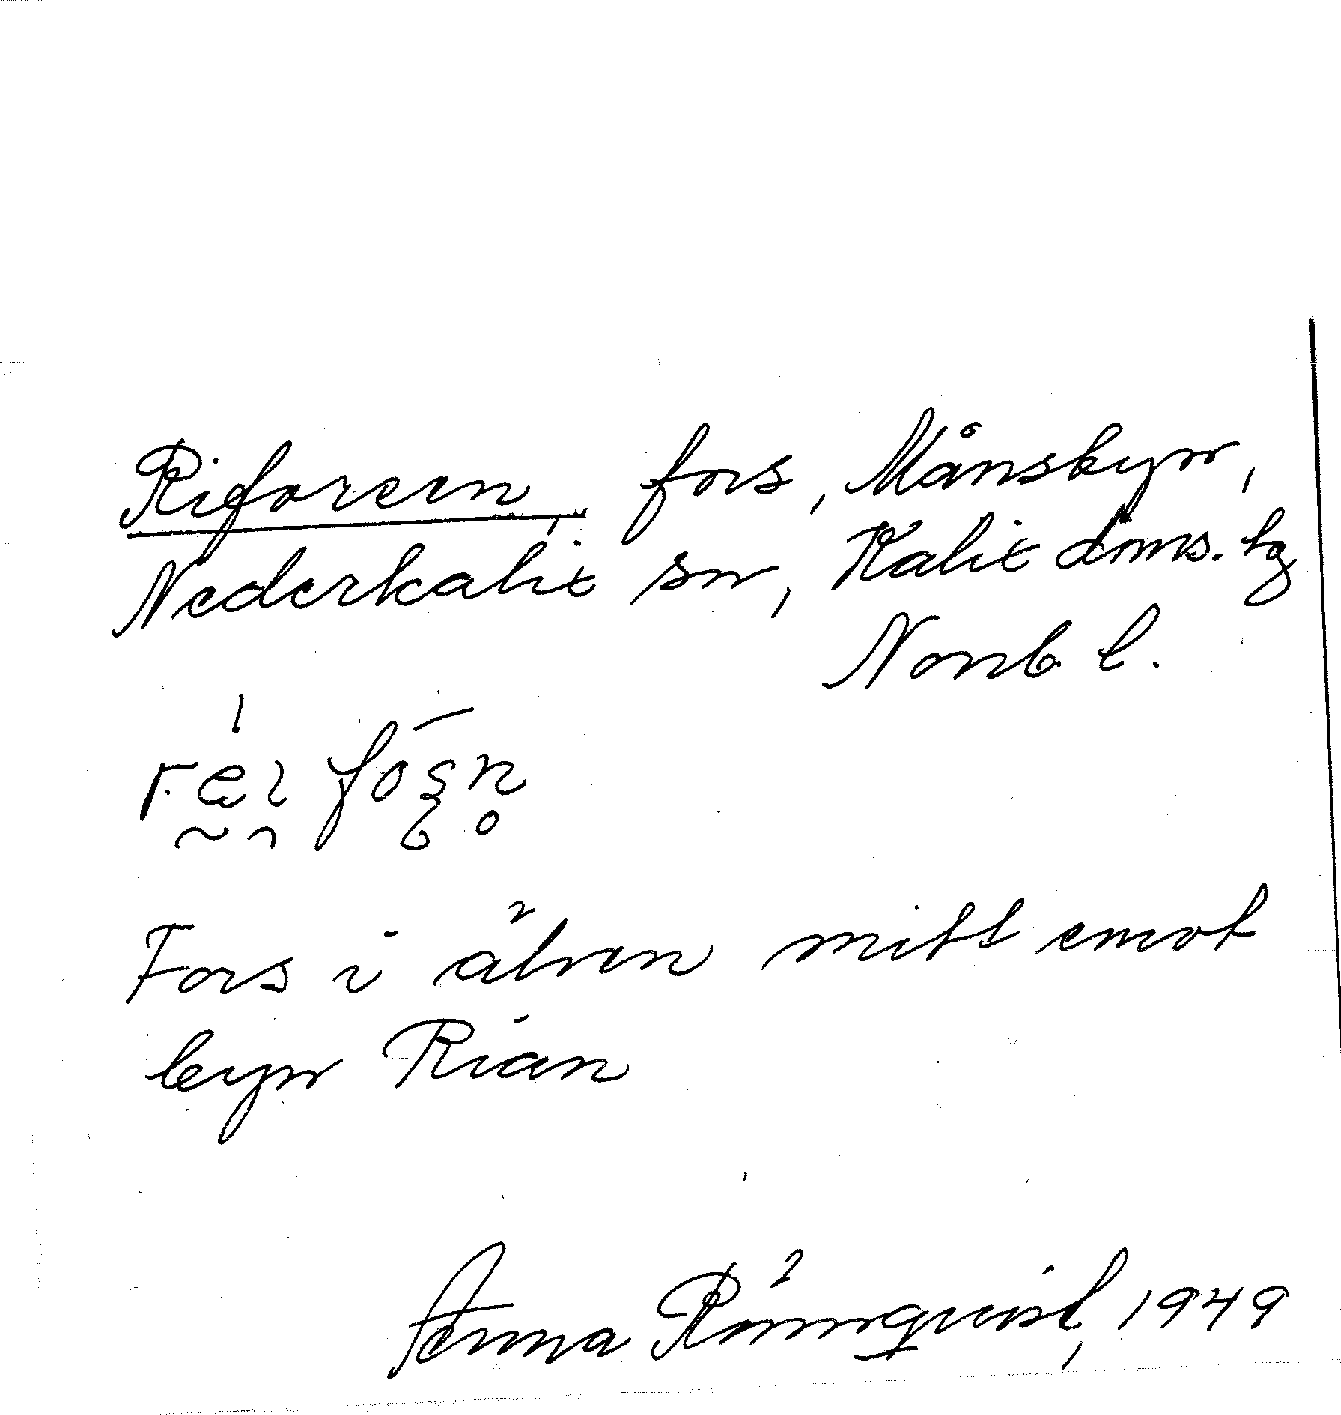 Riforsen, fors, Månsbyn,
Nederkalix sn, Kalix doms. hg
Norrb l.
Fors i älven mitt emot
byn Rian
Anna Rönnquist, 1949